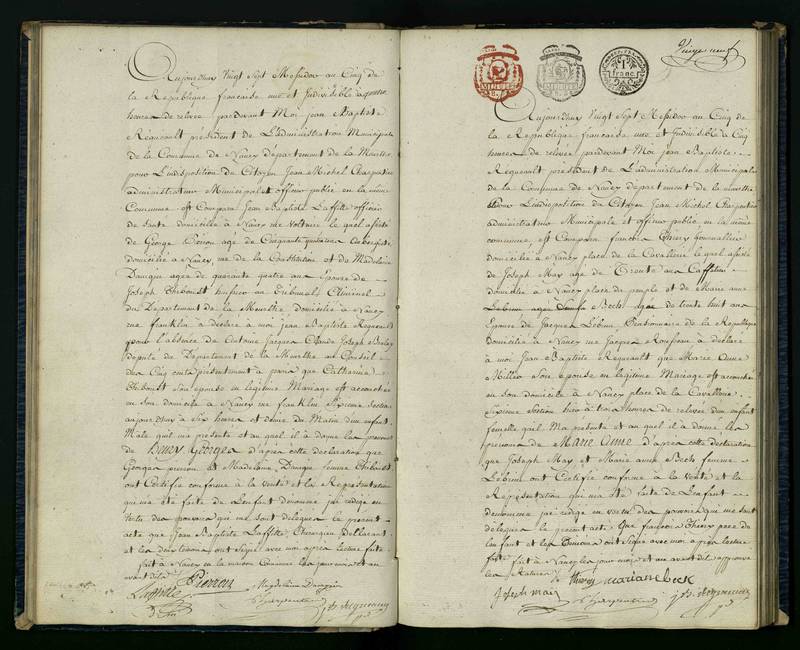 Aujourd'huy Vingt Sept Messidor an Cinq de
la Republique francaise une et Indivisible à quatre
heures de relevée pardevant Moi jean Baptiste
president de L'administration Municipale
de la Commune de Nancy departement de la Meurthe
pour L'indisposition du Citoyen Jean Michel Charpentier
administrateur Municipal et officier public en la même
Commune est Comparu Jean Baptiste Laffitte officier
de Santé domicilié à Nancy rue Voltaire le quel assisté
de George agé de Cinquante
domicilié à Nancy rue de la Constitution et de Madelaine
agée de quarante quatre ans Epouse de
Joseph Thiboust huissier au Tribunal Criminel
du Departement de la Meurthe domicilié à Nancy
rue franklin à déclaré à moi jean Baptiste
pour l'absence de Claude Joseph
deputé du Departement de la Meurthe au Conseil
des Cinq cents présentement à paris que Catherine
Thiboust Son epouse en legitime Mariage est accouchée
en son domicile à Nancy rue franklin Sixieme Section
aujourd'huy à Six heures et demie du Matin d'un enfant
Male qui m'a présenté et au quel il à donné les prenoms
de Henry Georges d'après cette déclaration que
Georges et Madelaine femme Thiboust
ont Certifié conforme à la Verité et la Représentation
qui m'a été faite de l'enfant denommé j'ai redigé en
Vertu des pouvoirs qui me sont délégués le présent
acte que Jean Baptiste Laffitte Chirurgien Déclarant
et les deux témoins ont Signé avec moi après lecture faite
fait à Nancy en la maison Commune les jour mois et an
avant dits
Laffitte
Charpentier
1
franc
Aujourd'huy Vingt Sept Messidor an Cinq de
la Republique francaise une et Indivisible à Cinq
heures de relevée pardevant Moi jean Baptiste
president de L'administration Municipale
de la Commune de Nancy departement de la meurthe
L'indisposition du Citoyen Jean Michel Charpentier
administrateur Municipale et officier public en la même
commune, est Comparu francois Thiery
domicilié à Nancy place de la Cavallerie le quel assisté
de Joseph May agé de Trente ans
domicilié à Nancy place du peuple et de Marie anne
Beck agée de trente huit ans
Epouse de Jacques Lebrun Pensionnaire de la Republique
domicilié à Nancy rue Jacques Rousseau à déclaré
à moi Jean Baptiste que Marie Anne
Son epouse en legitime Mariage est accouchée
en son domicile à Nancy place de la Cavallerie
Sixieme Section hier à trois heures de relevée d'un enfant
femelle qu'il m'a présenté et au quel il à donné les
prenoms de Marie Anne d'après cette déclaration
que Joseph May et Marie anne Beck femme
Lebrun ont Certifié conforme à la Verité et la
Représentation qui m'a été faite de L'enfant
denommé j'ai redigé en vertu des pouvoirs qui me sont
délégués le present acte Que francois Thiery pere de
l'enfant et les Temoins ont Signé avec moi après lecture
faite fait à Nancy les jour mois et an avant dit
Thiery marianne beck
joseph mai
Charpentier